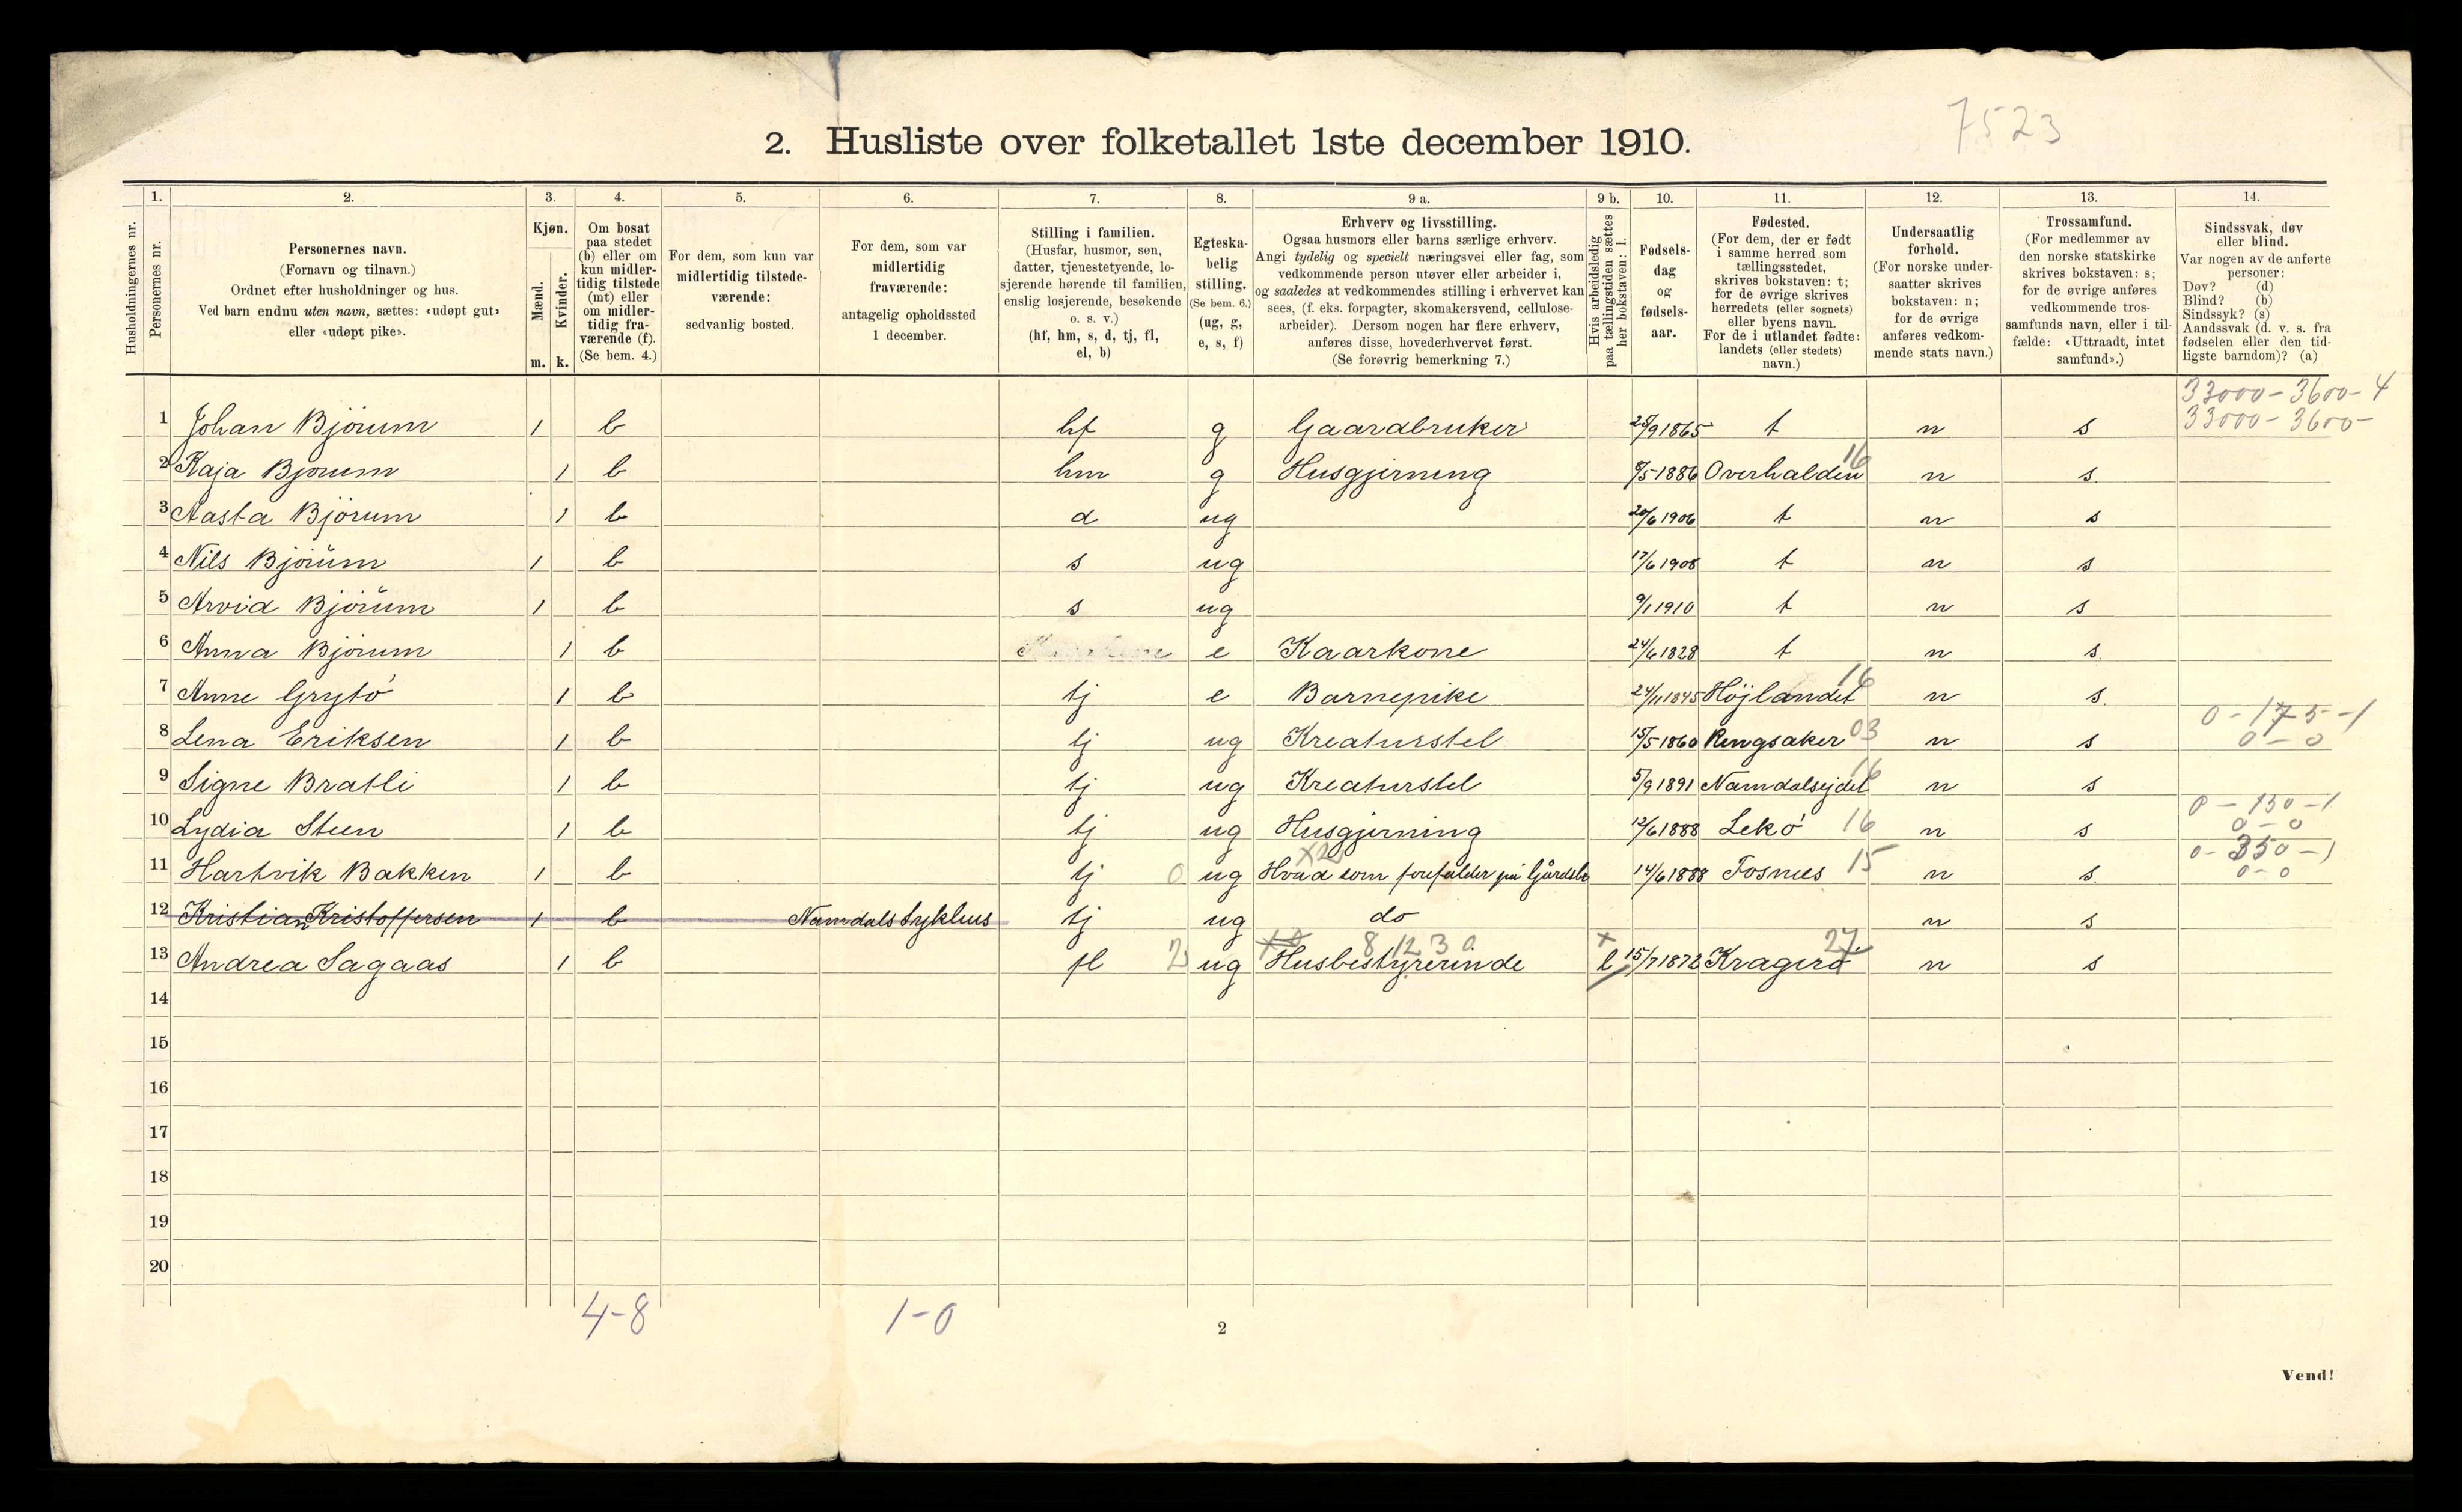 7523
2. Husliste over folketallet 1ste december 1910.
Husholdningernes nr.
1. Personernes nr.
2. Personernes navn. (Fornavn og tilnavn.) Ordnet efter husholdninger og hus. Ved barn endnu uten navn, sættes: «udøpt gut» eller «udøpt pike».
3. Kjøn. Mænd. m. Kvinder. k.
4. Om bosat paa stedet (b) eller om kun midlertidig tilstede (mt) eller om midlertidig fraværende (f). (Se bem. 4.)
5. For dem, som kun var midlertidig tilstedeværende: sedvanlig bosted.
6. For dem, som var midlertidig fraværende: antagelig opholdssted 1 december.
7. Stilling i familien. (Husfar, husmor, søn, datter, tjenestetyende, losjerende hørende til familien, enslig losjerende, besøkende o. s. v.) (hf, hm, s, d, tj, fl, el, b)
8. Egteskabelig stilling. (Se bem. 6.) (ug, g, e, s, f)
9 a. Erhverv og livsstilling. Ogsaa husmors eller barns særlige erhverv. Angi tydelig og specielt næringsvei eller fag, som vedkommende person utøver eller arbeider i, og saaledes at vedkommendes stilling i erhvervet kan sees, (f. eks. forpagter, skomakersvend, cellulosearbeider). Dersom nogen har flere erhverv, anføres disse, hovederhvervet først. (Se forøvrig bemerkning 7.)
9 b. Hvis arbeidsledig paa tællingstiden sættes her bokstaven: l.
10. Fødselsdag og fødselsaar.
11. Fødested. (For dem, der er født i samme herred som tællingsstedet, skrives bokstaven: t; for de øvrige skrives herredets (eller sognets) eller byens navn. For de i utlandet fødte: landets (eller stedets) navn.)
12. Undersaatlig forhold. (For norske undersaatter skrives bokstaven: n; for de øvrige anføres vedkommende stats navn.)
13. Trossamfund. (For medlemmer av den norske statskirke skrives bokstaven: s; for de øvrige anføres vedkommende trossamfunds navn, eller i tilfælde: «Uttraadt, intet samfund».)
14. Sindssvak, døv eller blind. Var nogen av de anførte personer: Døv? (d) Blind? (b) Sindssyk? (s) Aandssvak (d. v. s. fra fødselen eller den tidligste barndom)? (a)
33000 - 3600 - 4
1 Johan Bjørum 1 b hf g Gaardbruker 25/9 1865 t n s 33000 - 3600 -
2 Kaja Bjørum 1 b hm g Husgjerning 8/5 1886 Overhalden 16 n s
3 Aasta Bjørum 1 b d ug 20/6 1906 t n s
4 Nils Bjørum 1 b s ug 17/6 1908 t n s
5 Arvid Bjørum 1 b s ug 9/1 1910 t n s
6 Anna Bjørum 1 b e Kaarkone 24/6 1828 t n s.
7 Anne Grytø 1 b tj e Barnepike 24/11 1845 Højlandet 16 n s.
0 - 175 - 1
8 Lena Eriksen 1 b tj ug Kreaturstel 15/5 1860 Ringsaker 03 n s 0 - 0
9 Signe Bratli 1 b tj ug Kreaturstel 5/9 1891 Namdalsejdet 16 n s
0 - 150 - 1
10 Lydia Steen 1 b tj ug Husgjerning 12/6 1888 Lekø 16 n s 0 - 0
0 - 350 - 1
11 Hartvik Bakken 1 b tj 0 ug Hvad som forefalder på Gårdsbr 14/6 1888 Fosnes 15 n s. 0 - 0
12 Kristian Kristoffersen 1 b Namdals sykhus tj ug do n s
8 12 3 0
13 Andrea Sagaas 1 b fl 2 ug Husbestyrerinde x l 15/7 1872 Kragerø 27 n s
14
15
16
17
18
19
20
4-8 1-0
2
Vend!